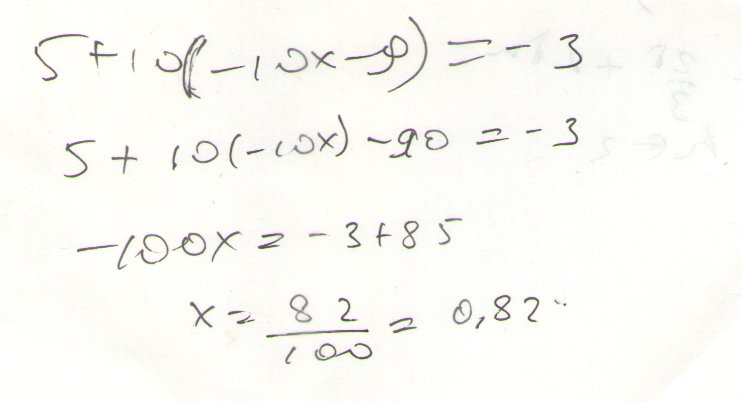 5+10(-10x-9)=-3
5+10(-10x)-90=-3
-100x=-3+85
x=82/100=0,82